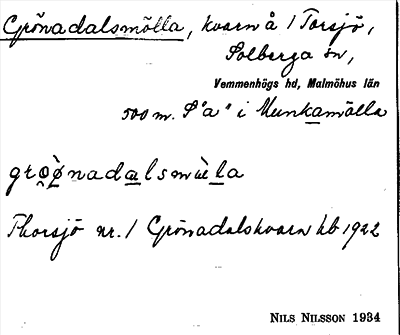 Grönadalsmölla, kvarn å 1 Torsjö,
Solberga sn,
Vemmenhögs hd, Malmöhus län
500 m. S "a" i Munkamölla
grǫø̀nadalsmὼla
Thorsjö nr. 1 Grönadalskvarn kb 1922
NILS NILSSON 1934